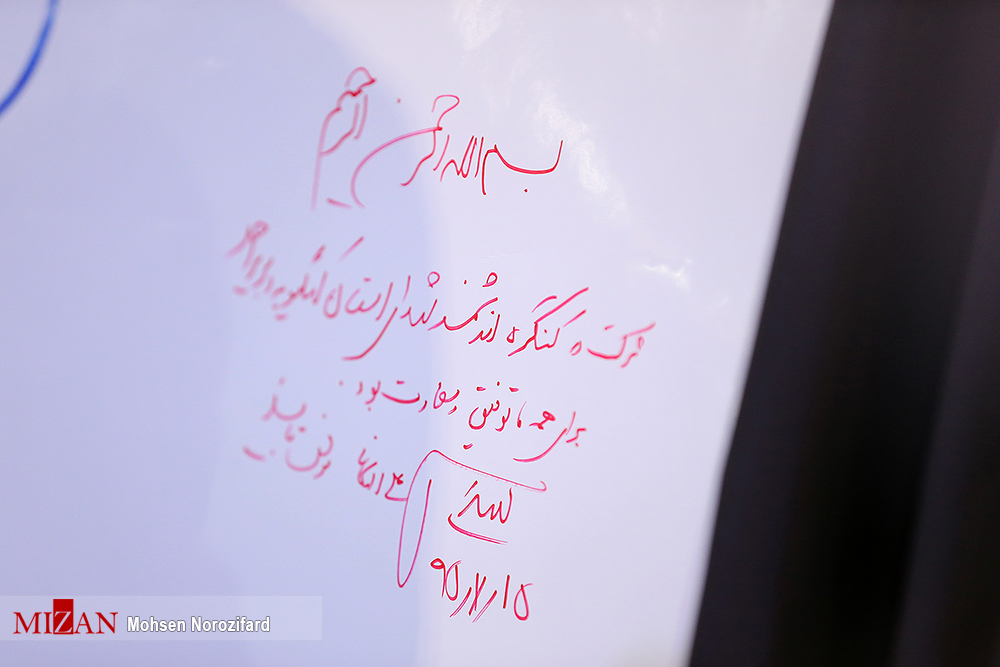 بسم الله الرحمن الرحیم
شرکت در کنگره اندیشمند شهدای استان کهگیلویه و بویراحمد
برای همه ما توفیق و سعادت بود.
موفق باشید
۹۵/۷/۱۵
MIZAN Mohsen Norozifard